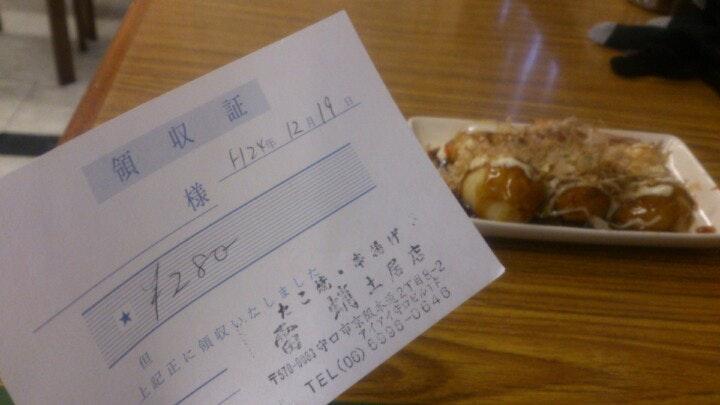 領収証
H24年 12月 19日
様
★ ¥280-
但
上記正に領収いたしました
たこ焼・串揚げ
蛸 土居店
〒570-0083 守口市京阪本通2丁目8-2
アイアイ守口ビル1F
TEL(06)6996-0646